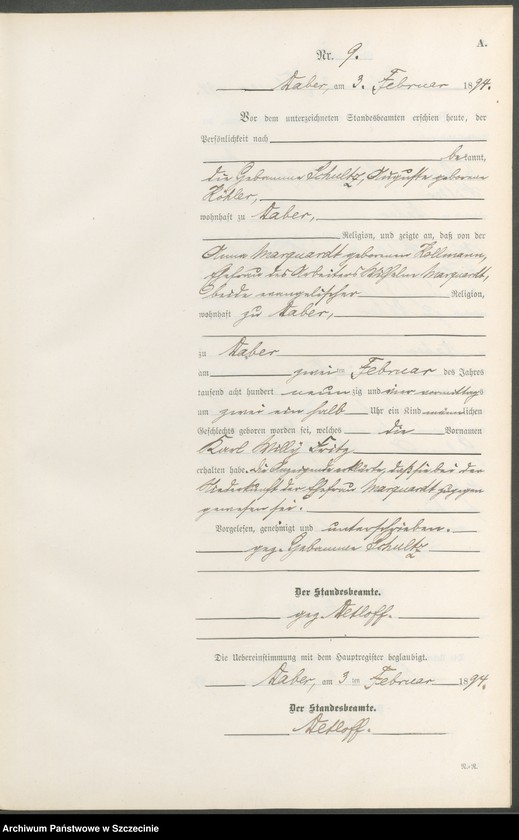 A.
Nr. 9.
Daber, am 3. Februar 1894.
Vor dem unterzeichneten Standesbeamten erschien heute, der
Persönlichkeit nach
bekannt,
die Hebamme Schultz, Auguste geborene
Köhler,
wohnhaft zu Daber,
Religion, und zeigte an, daß von der
Anna Marquardt geborenen Kollmann,
Ehefrau des Arbeiters Wilhelm Marquardt,
beide evangelischer Religion,
wohnhaft zu Daber,
zu Daber
am zwei ten Februar des Jahres
tausend acht hundert neunzig und vier vormittags
um zwei ein halb Uhr ein Kind männlichen
Geschlechts geboren worden sei, welches die Vornamen
Karl Willy Fritz
erhalten habe. Die Anzeigende erklärte, daß sie bei der
Niederkunft der Ehefrau Marquardt zugegen
gewesen sei.
Vorgelesen, genehmigt und unterschrieben.
gez. Hebamme Schultz
Der Standesbeamte.
gez.
Die Uebereinstimmung mit dem Hauptregister beglaubigt.
Daber, am 3 ten Februar 1894.
Der Standesbeamte.
Archiwum Państwowe w Szczecinie